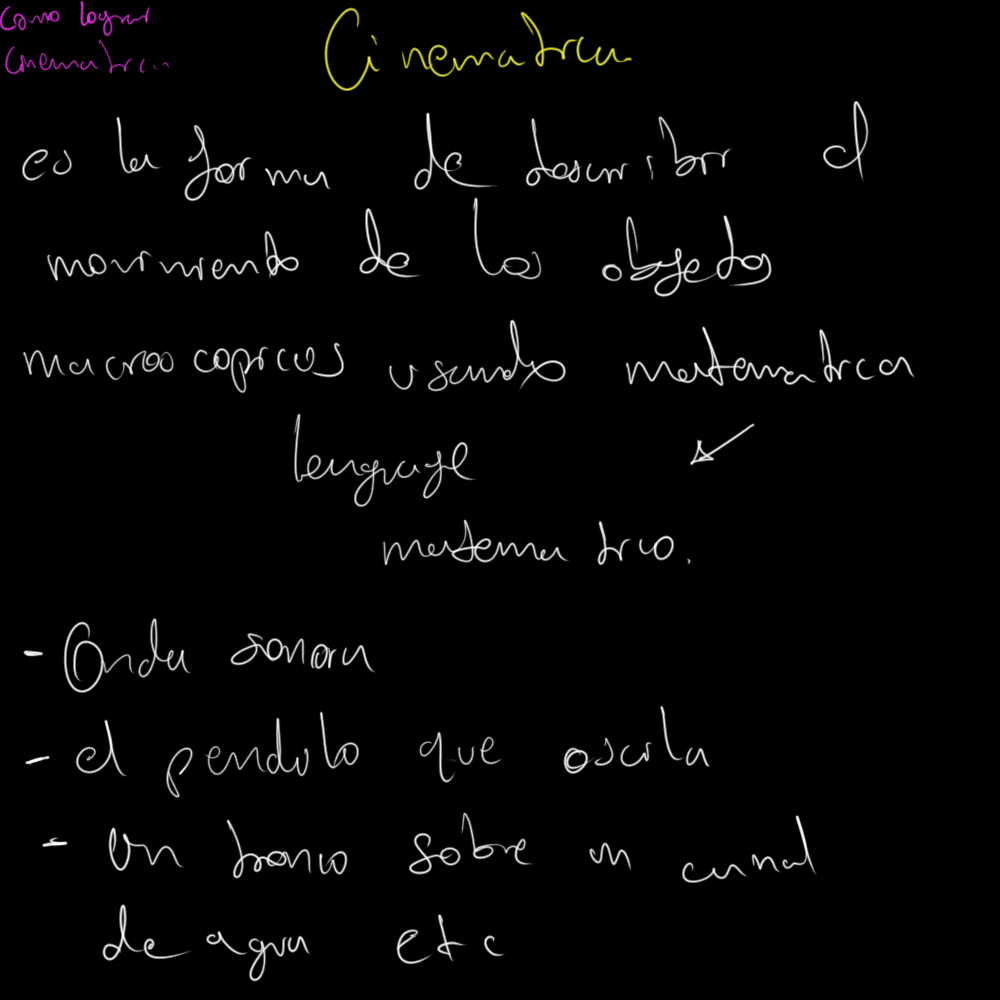 Como lograr
Cinematica..
Cinematica.
es la forma de describir el
movimiento de los objetos
macroscopicos usando matematica
lenguaje
matematico.
- Onda sonora
- el pendulo que oscila
- Un tronco sobre un canal
de agua etc